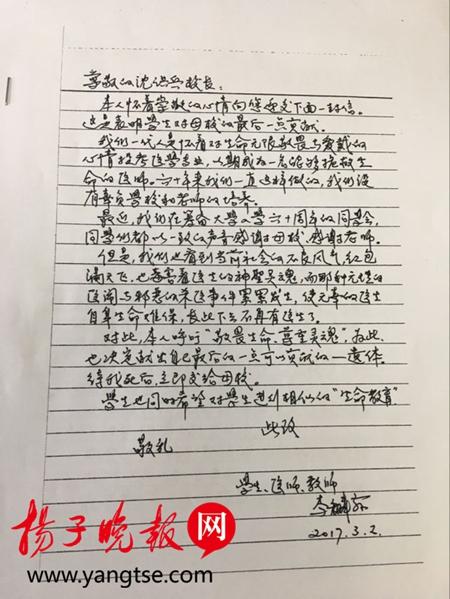 尊敬的沈洪兵校长：
本人怀着崇敬的心情向您递交下面一封信。
这是表明學生对母校的最后一点贡献。
我们一代人是怀着对生命无限敬畏与爱戴的
心情投考医學专业，以期成为一名能够拯救生
命的医师。六十年来我们一直这样做的，我们没
有辜负学校和老师的培养。
最近，我们在举办大學入學六十周年的同學会，
同學们都以一致的声音感谢母校、感谢老师。
但是，我们也看到当前社会的不良风气，红包
满天飞，也毒害着医生的神聖灵魂，而那种无理的
医闹与邪恶的杀医事件累累发生，使无辜的医生
自身生命难保，长此下去不再有医生了。
对此，本人呼吁“敬畏生命，尊重灵魂”，为此，
也决定献出自己最后的一点可以贡献的——遗体。
待我死后，立即交给母校。
學生也同时希望对學生进行相似的“生命教育”
此致
敬礼
学生、医师、教师
2017.3.2.
扬子晚报网
www.yangtse.com